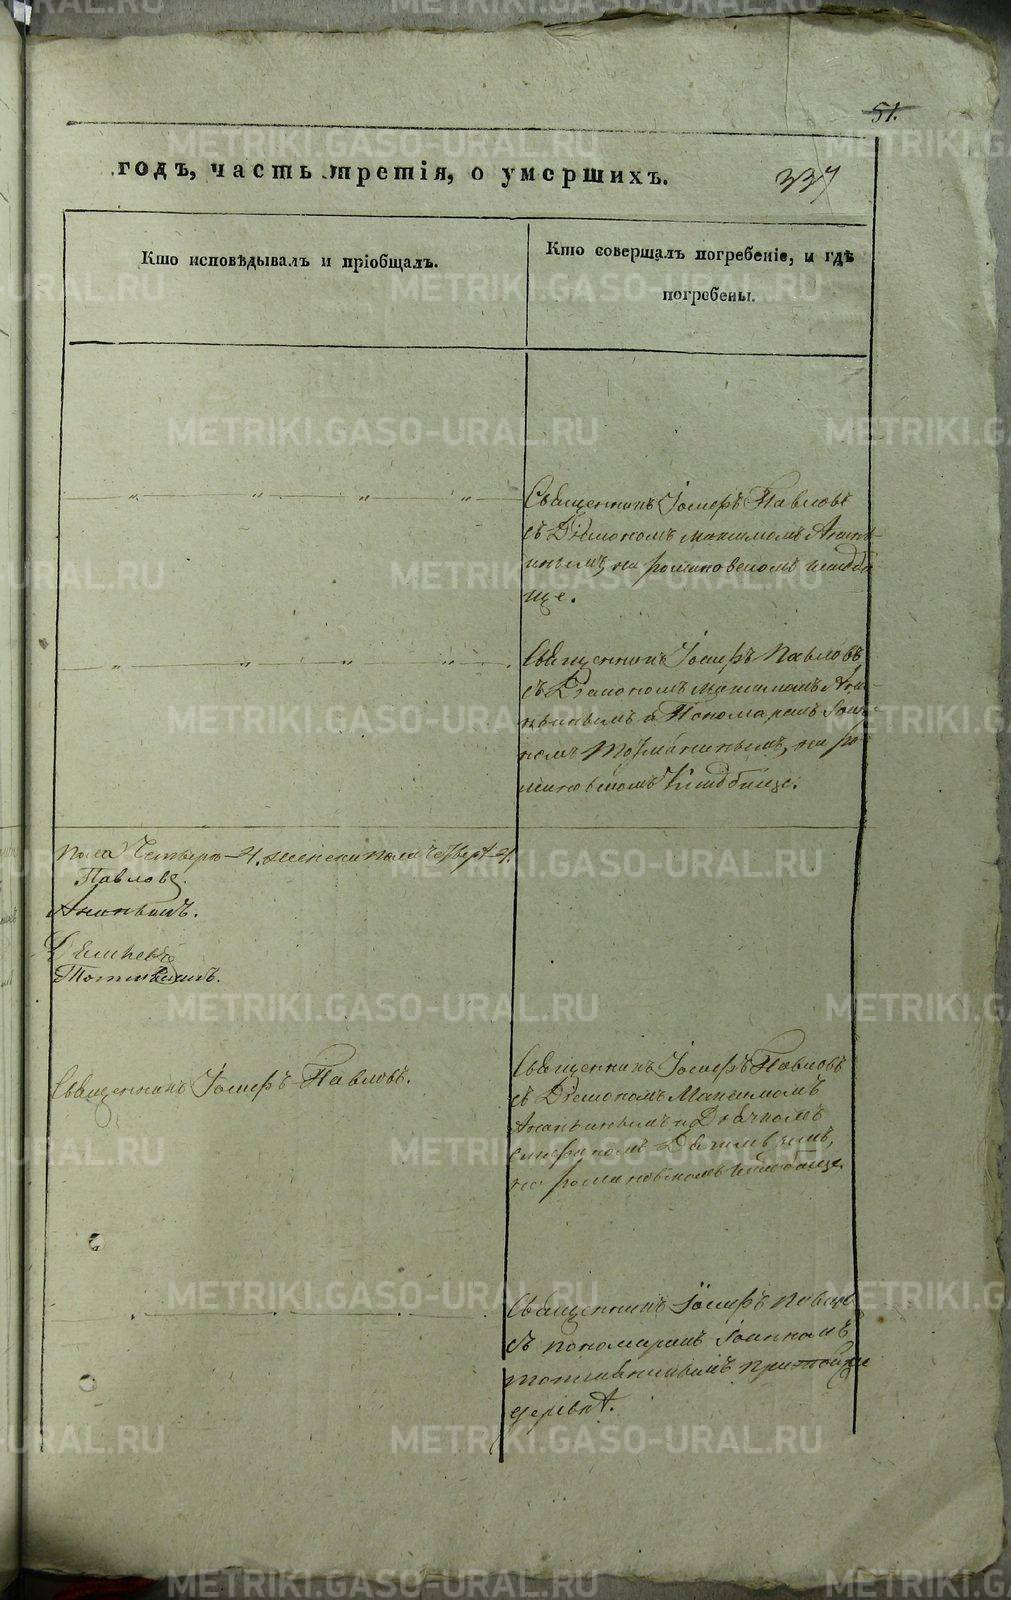 51.
годъ, часть третія, о умершихъ.
337
Кто исповѣдывалъ и пріобщалъ.
Кто совершалъ погребеніе, и гдѣ
погребены.
Священникъ Іосифъ Павловъ
съ Діакономъ Максимомъ Анань-
инымъ, на романовскомъ кладби
ще.
Священникъ Іосифъ Павловъ
съ Діакономъ Максимомъ Ана-
ньинымъ и Пономаремъ Іоан-
номъ на ро-
мановскомъ Кладбище.
пола Четыре 4. женска пола Четыре 4.
Павловъ.
Ананьинъ.
Священникъ Іосифъ Павловъ.
Священникъ Іосифъ Павловъ
съ Діакономъ Максимомъ
Ананьинымъ и Дьячкомъ
на романовскомъ кладбище.
Священникъ Іосифъ Павловъ
съ пономаремъ Іоанномъ
при
церкви.
METRIKI.GASO-URAL.RU